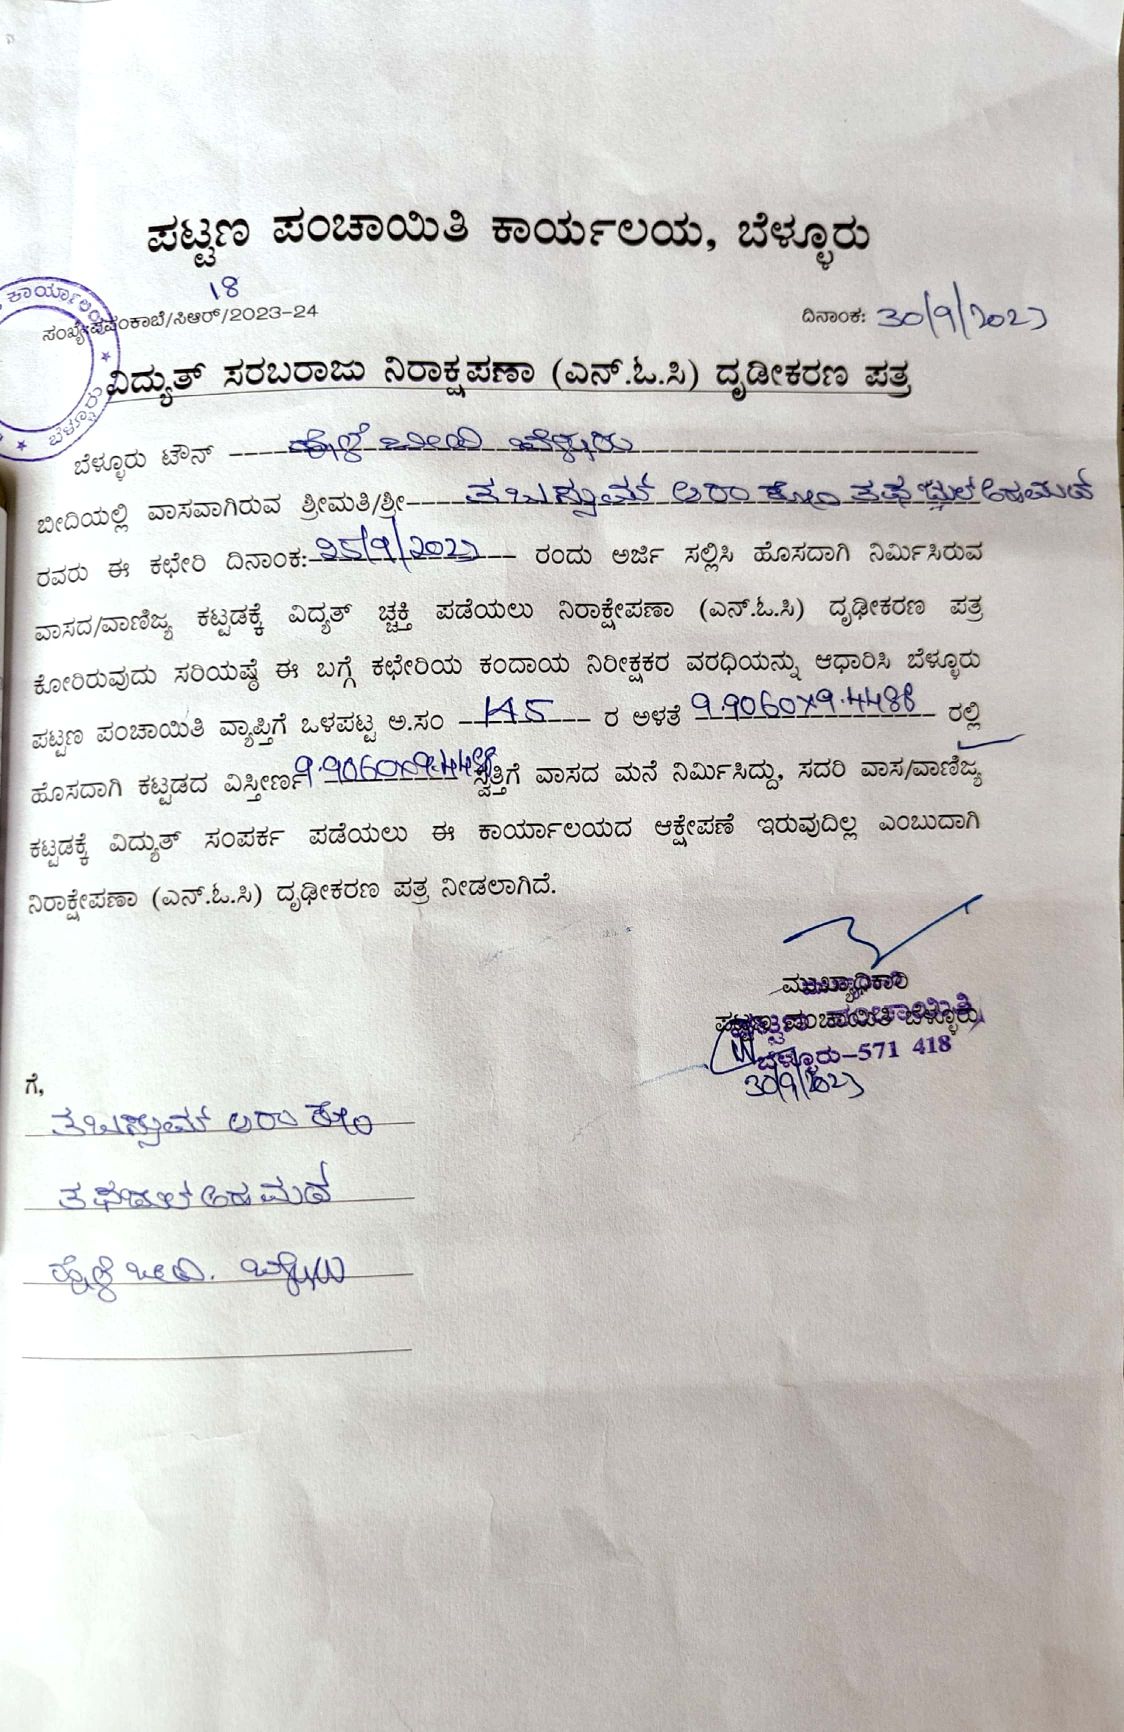 ಪಟ್ಟಣ ಪಂಚಾಯಿತಿ ಕಾರ್ಯಲಯ, ಬೆಳ್ಳೂರು
18
ಸಂಖ್ಯೆ:ಪಪಂಕಾಬೆ/ಸಿಆರ್/2023-24
ದಿನಾಂಕ: 30/9/2023
ವಿದ್ಯುತ್ ಸರಬರಾಜು ನಿರಾಕ್ಷಪಣಾ (ಎನ್.ಓ.ಸಿ) ದೃಡೀಕರಣ ಪತ್ರ
ಬೆಳ್ಳೂರು ಟೌನ್ ಬೀದಿ ಬೆಳ್ಳೂರು
ಬೀದಿಯಲ್ಲಿ ವಾಸವಾಗಿರುವ ಶ್ರೀಮತಿ/ಶ್ರೀ ತಬಸ್ಸುಮ್ ಅರಾ ಕೋಂ
ರವರು ಈ ಕಛೇರಿ ದಿನಾಂಕ: 25/9/2023 ರಂದು ಅರ್ಜಿ ಸಲ್ಲಿಸಿ ಹೊಸದಾಗಿ ನಿರ್ಮಿಸಿರುವ
ವಾಸದ/ವಾಣಿಜ್ಯ ಕಟ್ಟಡಕ್ಕೆ ವಿದ್ಯತ್ ಚ್ಚಕ್ತಿ ಪಡೆಯಲು ನಿರಾಕ್ಷೇಪಣಾ (ಎನ್.ಓ.ಸಿ) ದೃಢೀಕರಣ ಪತ್ರ
ಕೋರಿರುವುದು ಸರಿಯಷ್ಠೆ ಈ ಬಗ್ಗೆ ಕಛೇರಿಯ ಕಂದಾಯ ನಿರೀಕ್ಷಕರ ವರಧಿಯನ್ನು ಆಧಾರಿಸಿ ಬೆಳ್ಳೂರು
ಪಟ್ಟಣ ಪಂಚಾಯಿತಿ ವ್ಯಾಪ್ತಿಗೆ ಒಳಪಟ್ಟ ಅ.ಸಂ 145 ರ ಅಳತೆ 9.9060x9.4488 ರಲ್ಲಿ
ಹೊಸದಾಗಿ ಕಟ್ಟಡದ ವಿಸ್ತೀರ್ಣ 9.9060x9.4488 ಸ್ವತ್ತಿಗೆ ವಾಸದ ಮನೆ ನಿರ್ಮಿಸಿದ್ದು, ಸದರಿ ವಾಸ/ವಾಣಿಜ್ಯ
ಕಟ್ಟಡಕ್ಕೆ ವಿದ್ಯುತ್ ಸಂಪರ್ಕ ಪಡೆಯಲು ಈ ಕಾರ್ಯಾಲಯದ ಆಕ್ಷೇಪಣೆ ಇರುವುದಿಲ್ಲ ಎಂಬುದಾಗಿ
ನಿರಾಕ್ಷೇಪಣಾ (ಎನ್.ಓ.ಸಿ) ದೃಢೀಕರಣ ಪತ್ರ ನೀಡಲಾಗಿದೆ.
ಮುಖ್ಯಾಧಿಕಾರಿ
ಪಟ್ಟಣ ಪಂಚಾಯಿತಿ ಬೆಳ್ಳೂರು
ಬೆಳ್ಳೂರು-571 418
30/9/2023
ಗೆ,
ತಬಸ್ಸುಮ್ ಅರಾ ಕೋಂ
ಬೀದಿ.